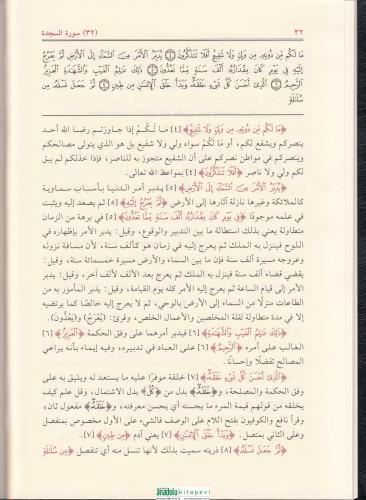 ٣٢
(٣٢) سورة السجدة
مَا لَكُم مِّن دُونِهِ مِن وَلِيٍّ وَلَا شَفِيعٍ أَفَلَا تَتَذَكَّرُونَ ﴿٤﴾ يُدَبِّرُ الْأَمْرَ مِنَ السَّمَاءِ إِلَى الْأَرْضِ ثُمَّ يَعْرُجُ
إِلَيْهِ فِي يَوْمٍ كَانَ مِقْدَارُهُ أَلْفَ سَنَةٍ مِّمَّا تَعُدُّونَ ﴿٥﴾ ذَلِكَ عَالِمُ الْغَيْبِ وَالشَّهَادَةِ الْعَزِيزُ
الرَّحِيمُ ﴿٦﴾ الَّذِي أَحْسَنَ كُلَّ شَيْءٍ خَلَقَهُ وَبَدَأَ خَلْقَ الْإِنسَانِ مِن طِينٍ ﴿٧﴾ ثُمَّ جَعَلَ نَسْلَهُ مِن
سُلَالَةٍ
﴿مَا لَكُم مِّن دُونِهِ مِن وَلِيٍّ وَلَا شَفِيعٍ﴾ [٤] مَا لَكُمْ إذا جاوزتم رضا الله أحد
ينصركم ويشفع لكم، أو مَا لَكُمْ سواه ولي ولا شفيع بل هو الذي يتولى مصالحكم
وينصركم في مواطن نصركم على أن الشفيع متجوز به للناصر، فإذا خذلكم لم يبق
لكم ولي ولا ناصر ﴿أَفَلَا تَتَذَكَّرُونَ﴾ [٤] بمواعظ الله تعالى.
﴿يُدَبِّرُ الْأَمْرَ مِنَ السَّمَاءِ إِلَى الْأَرْضِ﴾ [٥] يدبر أمر الدنيا بأسباب سماوية
كالملائكة وغيرها نازلة آثارها إلى الأرض ﴿ثُمَّ يَعْرُجُ إِلَيْهِ﴾ [٥] ثم يصعد إليه ويثبت
في علمه موجودًا ﴿فِي يَوْمٍ كَانَ مِقْدَارُهُ أَلْفَ سَنَةٍ مِّمَّا تَعُدُّونَ﴾ [٥] في برهة من الزمان
متطاولة يعني بذلك استطالة ما بين التدبير والوقوع، وقيل: يدبر الأمر بإظهاره في
اللوح فينزل به الملك ثم يعرج إليه في زمان هو كألف سنة، لأن مسافة نزوله
وعروجه مسيرة ألف سنة فإن ما بين السماء والأرض مسيرة خمسمائة سنة، وقيل:
يقضي قضاء ألف سنة فينزل به الملك ثم يعرج بعد الألف لألف آخر، وقيل: يدبر
الأمر إلى قيام الساعة ثم يعرج إليه الأمر كله يوم القيامة، وقيل: يدبر المأمور به من
الطاعات منزلًا من السماء إلى الأرض بالوحي، ثم لا يعرج إليه خالصًا كما يرتضيه
إلا في مدة متطاولة لقلة المخلصين والأعمال الخلص، وقرئ: (يُعْرَجُ) و(يَعُدُّونَ).
﴿ذَلِكَ عَالِمُ الْغَيْبِ وَالشَّهَادَةِ﴾ [٦] فيدبر أمرهما على وفق الحكمة ﴿الْعَزِيزُ﴾ [٦]
الغالب على أمره ﴿الرَّحِيمُ﴾ [٦] على العباد في تدبيره، وفيه إيماء بأنه يراعي
المصالح تفضلًا وإحسانًا.
﴿الَّذِي أَحْسَنَ كُلَّ شَيْءٍ خَلَقَهُ﴾ [٧] خلقة موفرًا عليه ما يستعد له ويليق به على
وفق الحكمة والمصلحة، و﴿خَلَقَهُ﴾ بدل من ﴿كُلَّ﴾ بدل الاشتمال، وقل علم كيف
يخلقه من قولهم قيمة المرء ما يحسنه أي يحسن معرفته، و﴿خَلَقَهُ﴾ مفعول ثان،
وقرأ نافع والكوفيون بفتح اللام على الوصف فالشيء على الأول مخصوص بمنفصل
وعلى الثاني بمتصل. ﴿وَبَدَأَ خَلْقَ الْإِنسَانِ﴾ [٧] يعني آدم ﴿مِن طِينٍ﴾ [٧].
﴿ثُمَّ جَعَلَ نَسْلَهُ﴾ [٨] ذريته سميت بذلك لأنها تنسل منه أي تنفصل ﴿مِن سُلَالَةٍ
anadolukitapevi